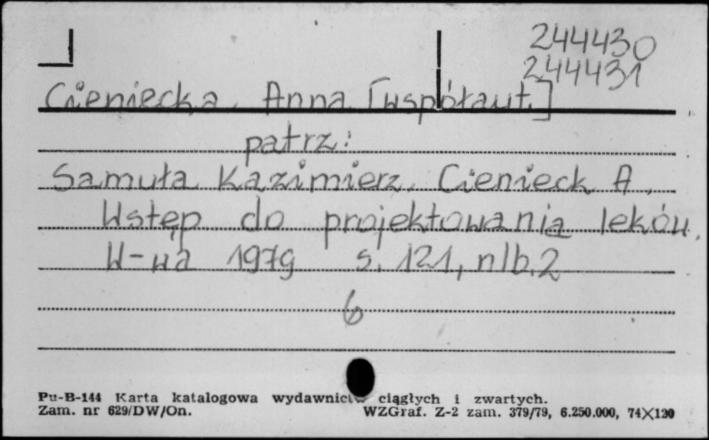 244430
244431
Cieniecka, Anna [współaut.]
patrz:
Samuła Kazimierz, Cienieck A.
Wstęp do projektowania leków.
W-wa 1979 s. 121, nlb. 2
6
Pu-B-144 Karta katalogowa wydawnictw ciągłych i zwartych.
Zam. nr 629/DW/On. WZGraf. Z-2 zam. 379/79, 6.250.000, 74×120